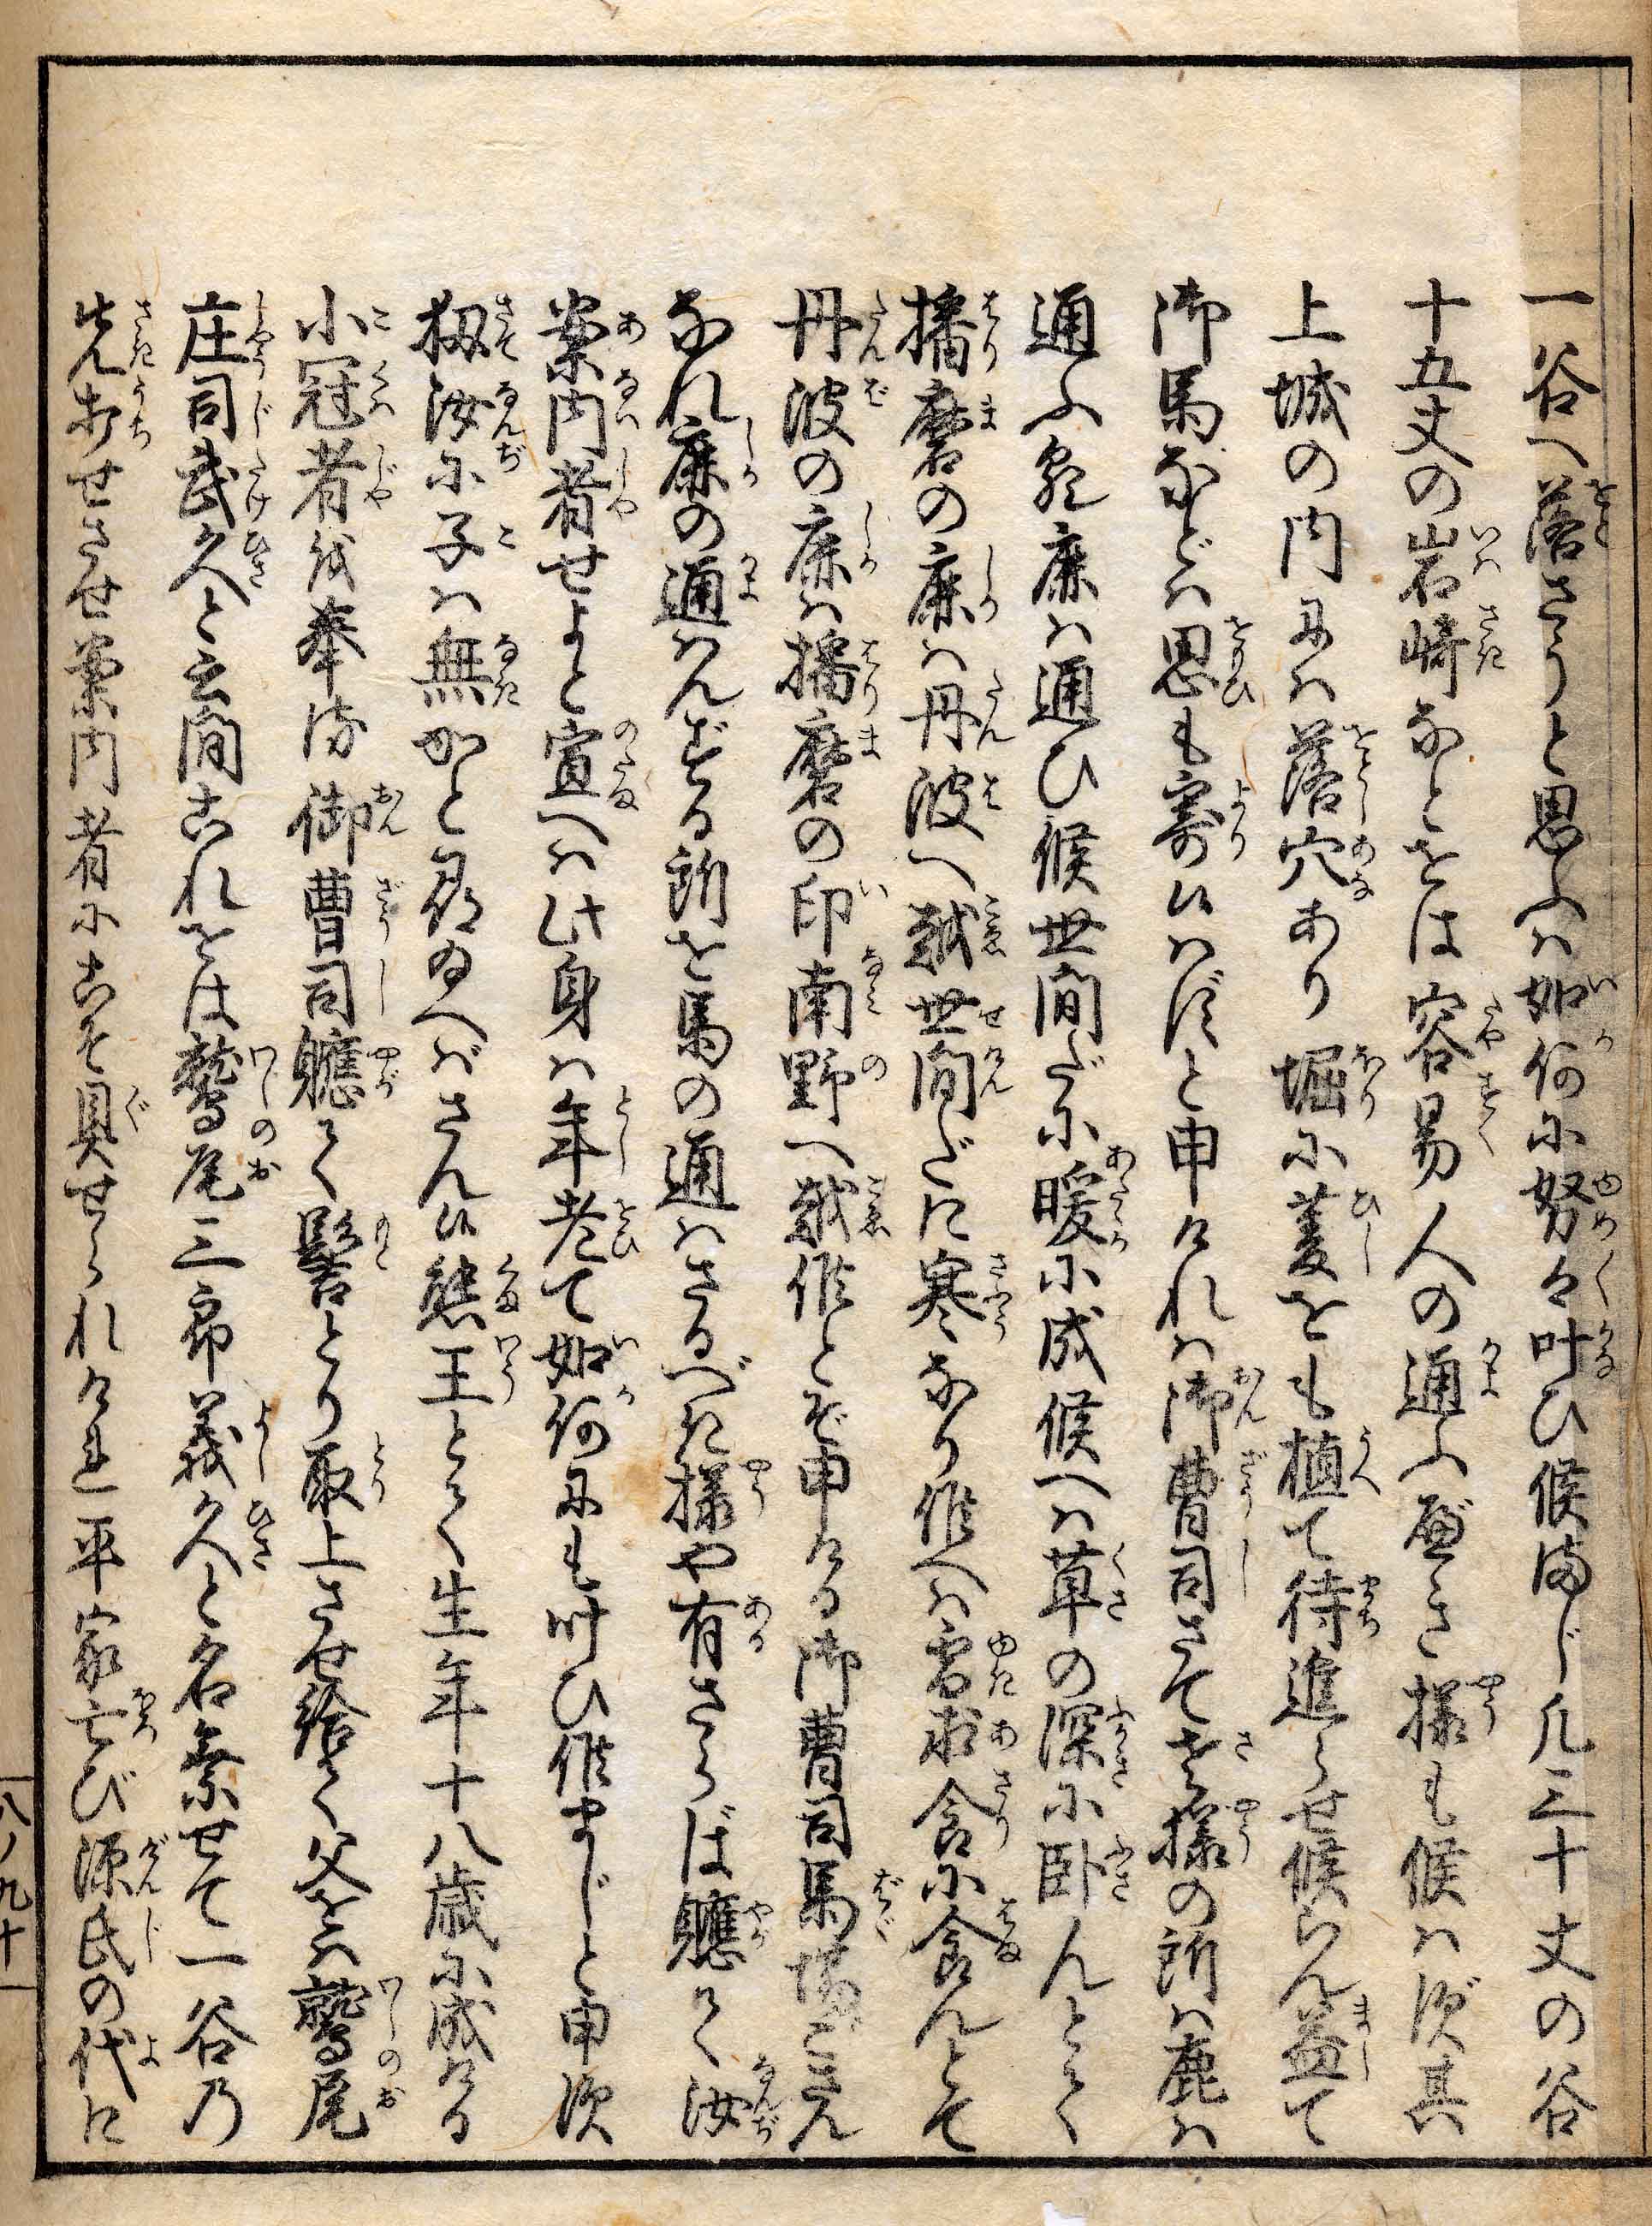 一谷へ落さうと思ふは如何に努々叶ひ候まじ凡三十丈の谷
十五丈の岩崎なとをは容易人の通ふべき様も候はず其
上城の内には落穴あり堀に菱をも植て待進らせ候らん益て
御馬などは思も寄候はずと申ければ御曹司さてさ様の所は鹿は
通ふか鹿は通ひ候世間だに暖に成候へは草の深に臥んとて
播磨の鹿は丹波へ越世間だに寒なり候へは雪求食に食んとて
丹波の鹿は播磨の印南野へ越候とぞ申ける御曹司馬場ごさん
なれ鹿の通はんずる所を馬の通はさるべき様や有さらば軈て汝
案内者せよと宣へは此身は年老て如何にも叶ひ候まじと申次
扨汝に子は無かと尋ぬへばさん候熊王とて生年十八歳に成ける
小冠者を奉る御曹司軈て髻とり取上させ給て父をは鷲尾
庄司武久と云間これをは鷲尾三郎義久と名乗せて一谷の
先打せさせ案内者にこそ具せられけれ平家亡び源氏の代に
八ノ九十一